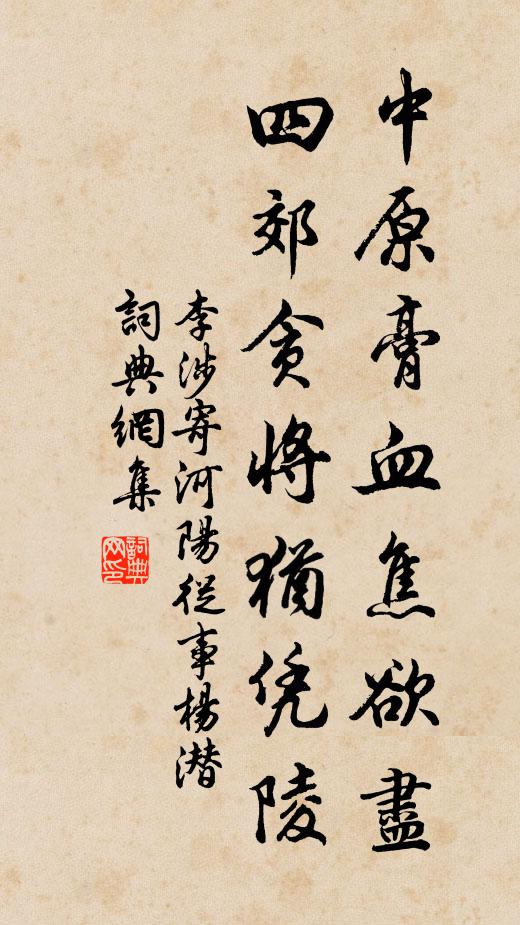 中原膏血焦欲盡
四郊貪將猶凭陵
李涉寄河陽從事楊潜
詞典網集
詞典网印